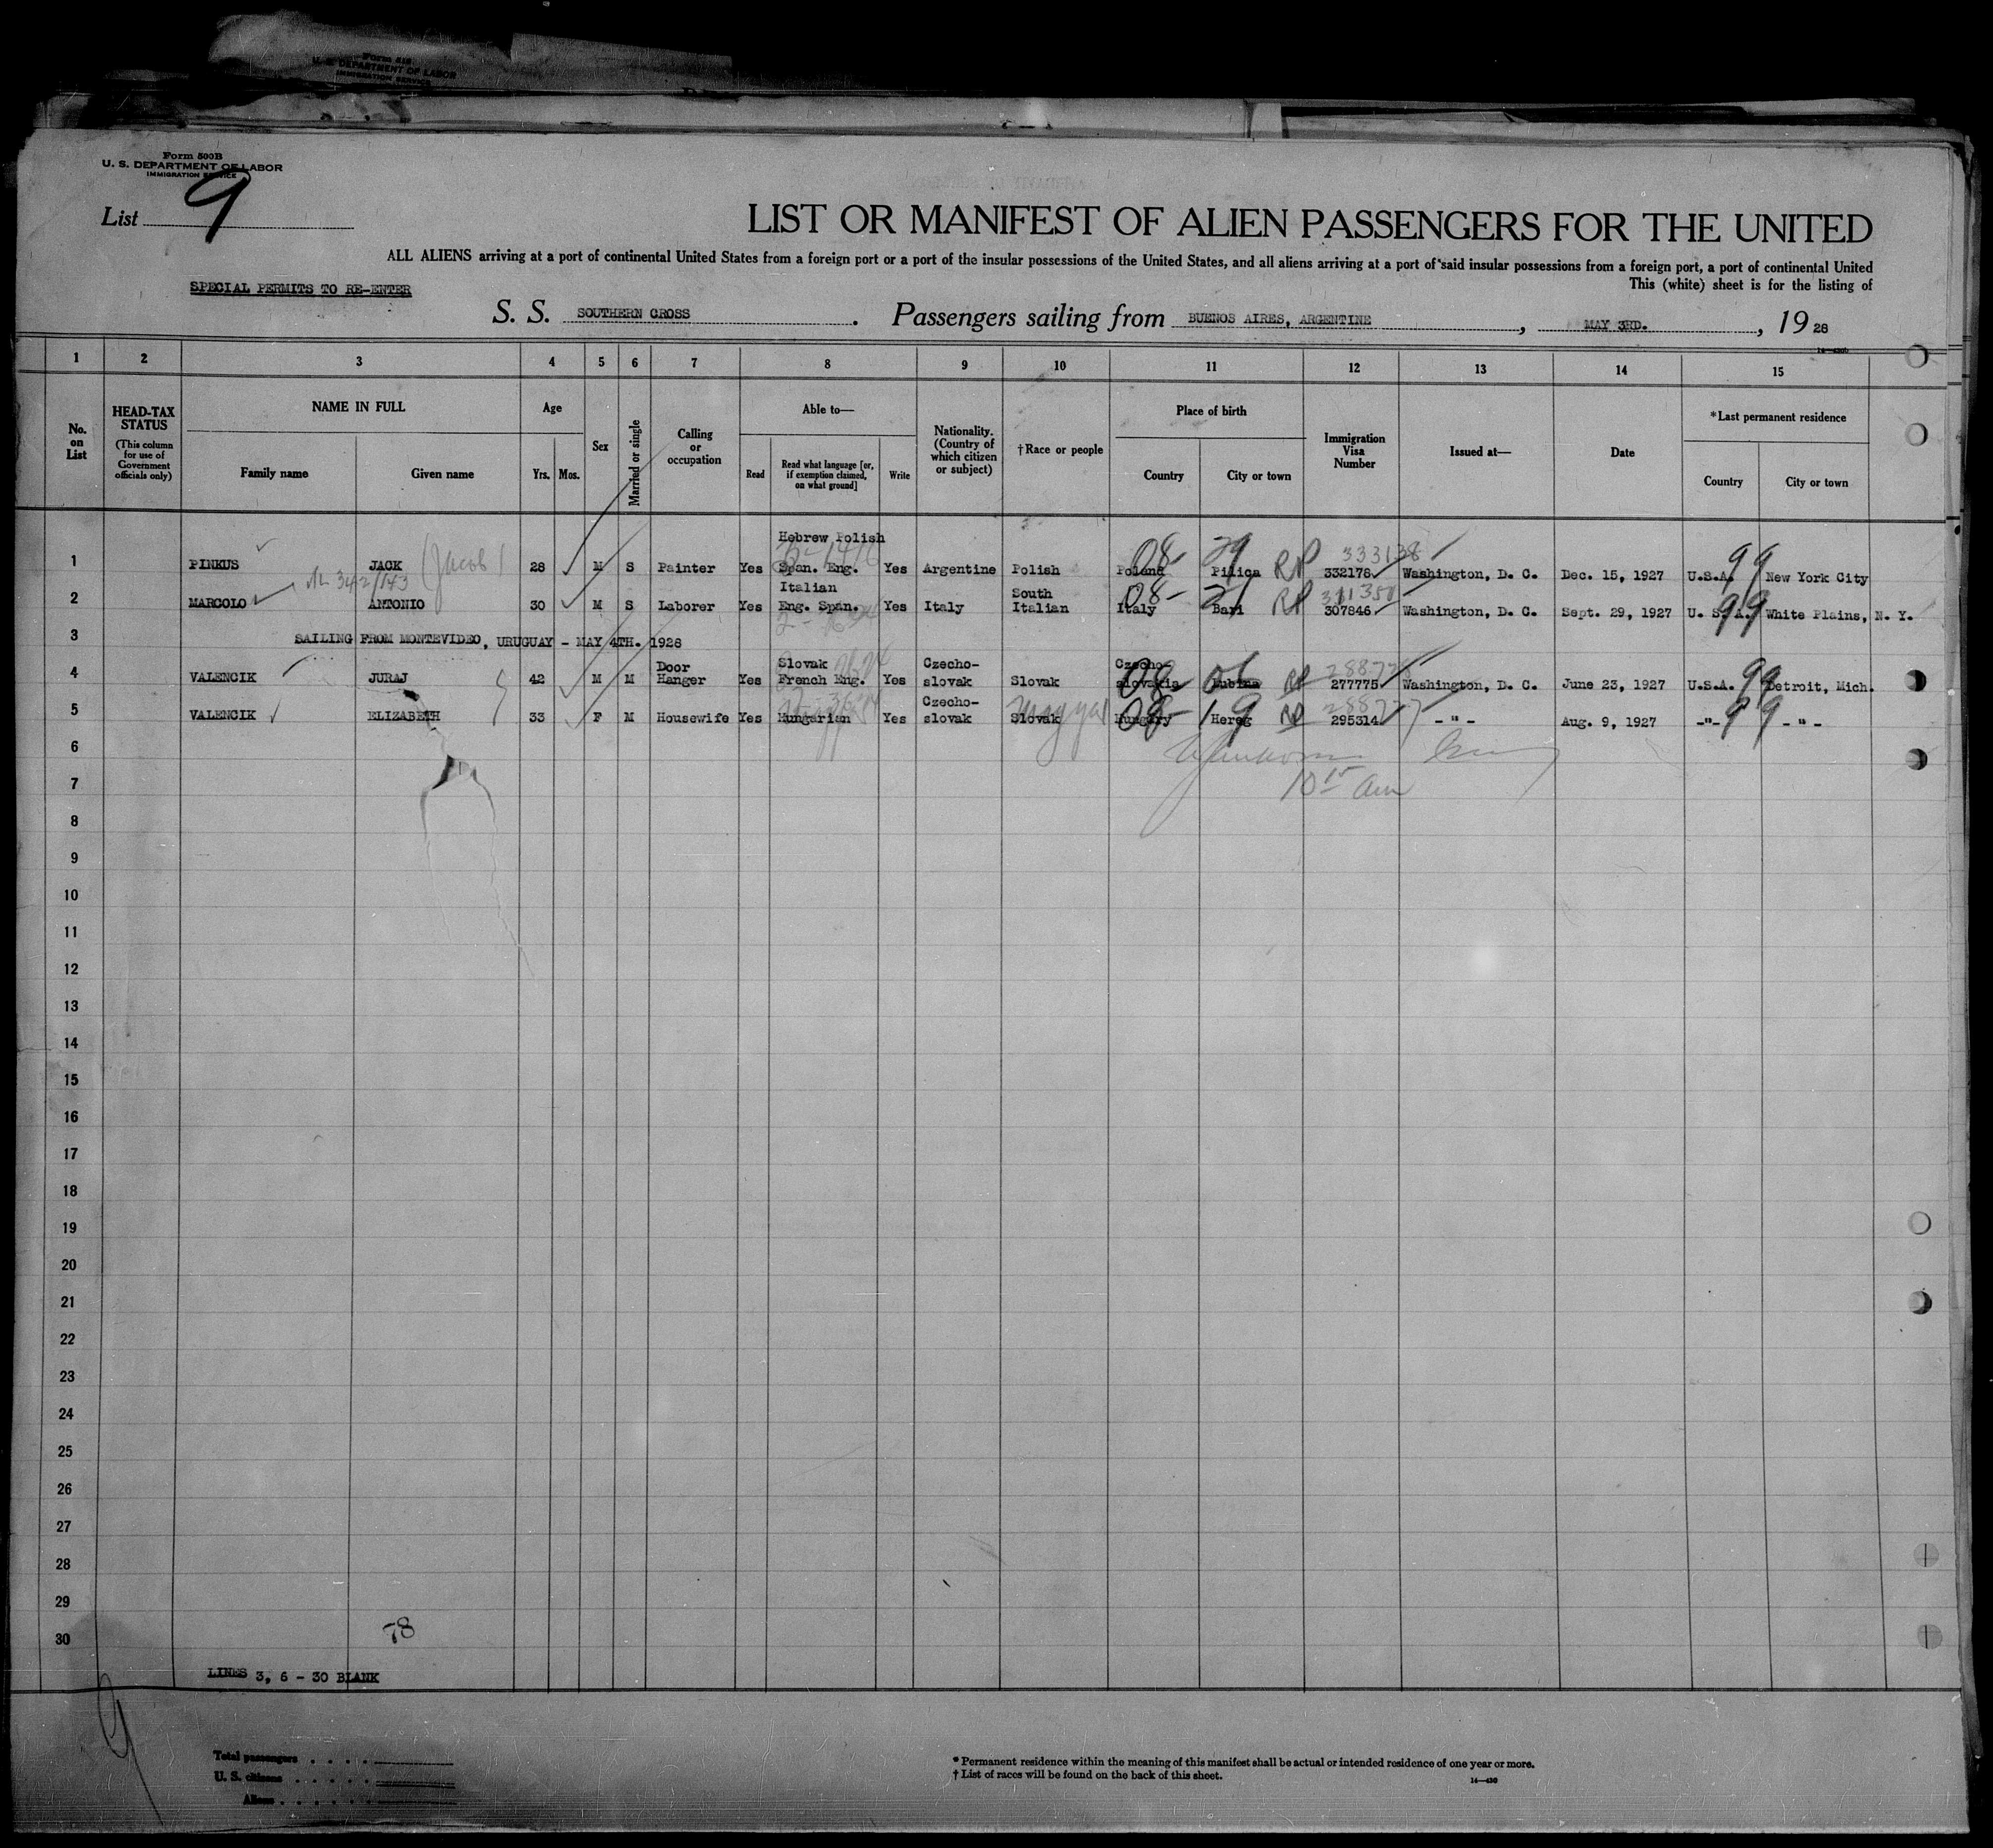 Form 518
U. S. DEPARTMENT OF LABOR
IMMIGRATION SERVICE
Form 500B
U. S. DEPARTMENT OF LABOR
IMMIGRATION SERVICE
List 9
LIST OR MANIFEST OF ALIEN PASSENGERS FOR THE UNITED
ALL ALIENS arriving at a port of continental United States from a foreign port or a port of the insular possessions of the United States, and all aliens arriving at a port of said insular possessions from a foreign port, a port of continental United
This (white) sheet is for the listing of
SPECIAL PERMITS TO RE-ENTER
S. S. SOUTHERN CROSS. Passengers sailing from BUENOS AIRES, ARGENTINE, MAY 3RD., 19 28
1 2 3 4 5 6 7 8 9 10 11 12 13 14 15
No. on List
HEAD-TAX STATUS (This column for use of Government officials only)
NAME IN FULL
Family name Given name
Age
Yrs. Mos.
Sex
Married or single
Calling or occupation
Able to—
Read Read what language [or, if exemption claimed, on what ground] Write
Nationality. (Country of which citizen or subject)
†Race or people
Place of birth
Country City or town
Immigration Visa Number
Issued at—
Date
*Last permanent residence
Country City or town
1 PINKUS JACK (Jacob) 28 M S Painter Yes Hebrew Polish Span. Eng. Yes Argentine Polish Poland Pilica RP 333138 332178 Washington, D. C. Dec. 15, 1927 U.S.A. New York City
2 MARCOLO ANTONIO 30 M S Laborer Yes Italian Eng. Span. Yes Italy South Italian Italy Bari RP 307846 Washington, D. C. Sept. 29, 1927 U. S. A. White Plains, N. Y.
3 SAILING FROM MONTEVIDEO, URUGUAY - MAY 4TH. 1928
4 VALENCIK JURAJ 42 M M Door Hanger Yes Slovak French Eng. Yes Czecho-slovak Slovak Czecho-slovakia Lubina RP 277775 Washington, D. C. June 23, 1927 U.S.A. Detroit, Mich.
5 VALENCIK ELIZABETH 33 F M Housewife Yes Hungarian Yes Czecho-slovak Slovak Magyar Hungary Hereg RP 295314 -"- Aug. 9, 1927 -"- -"-
6
10 15 am
7
8
9
10
11
12
13
14
15
16
17
18
19
20
21
22
23
24
25
26
27
28
29
78
30
LINES 3, 6 - 30 BLANK
9
Total passengers
U. S. citizens
Aliens
* Permanent residence within the meaning of this manifest shall be actual or intended residence of one year or more.
† List of races will be found on the back of this sheet.
14—430